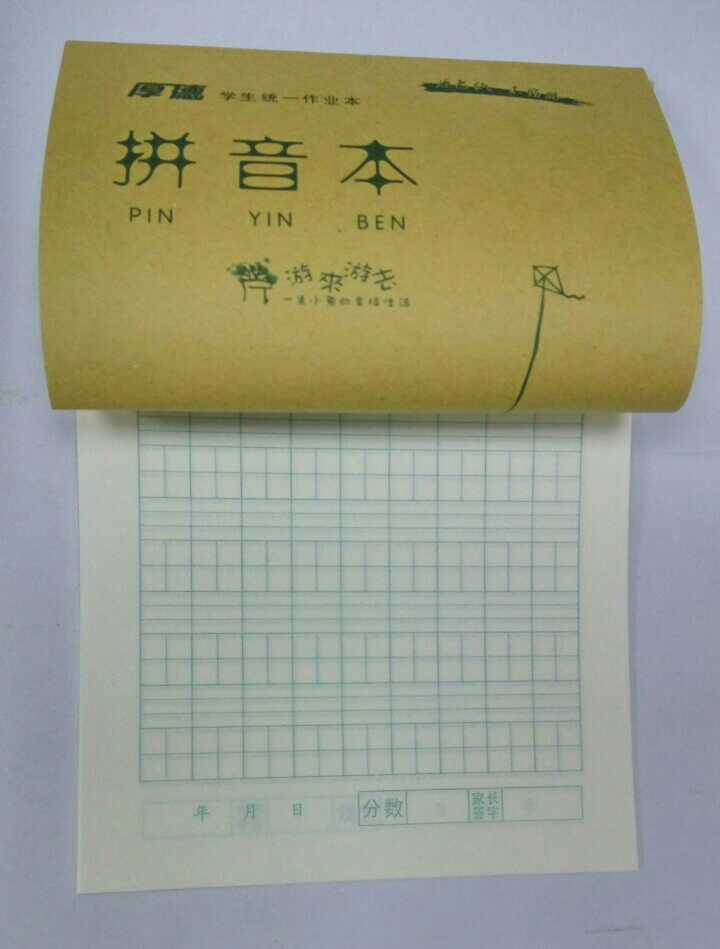 厚德 学生统一作业本
拼音本
PIN YIN BEN
游來游去
一条小鱼的幸福生活
年 月 日 分数 家长签字